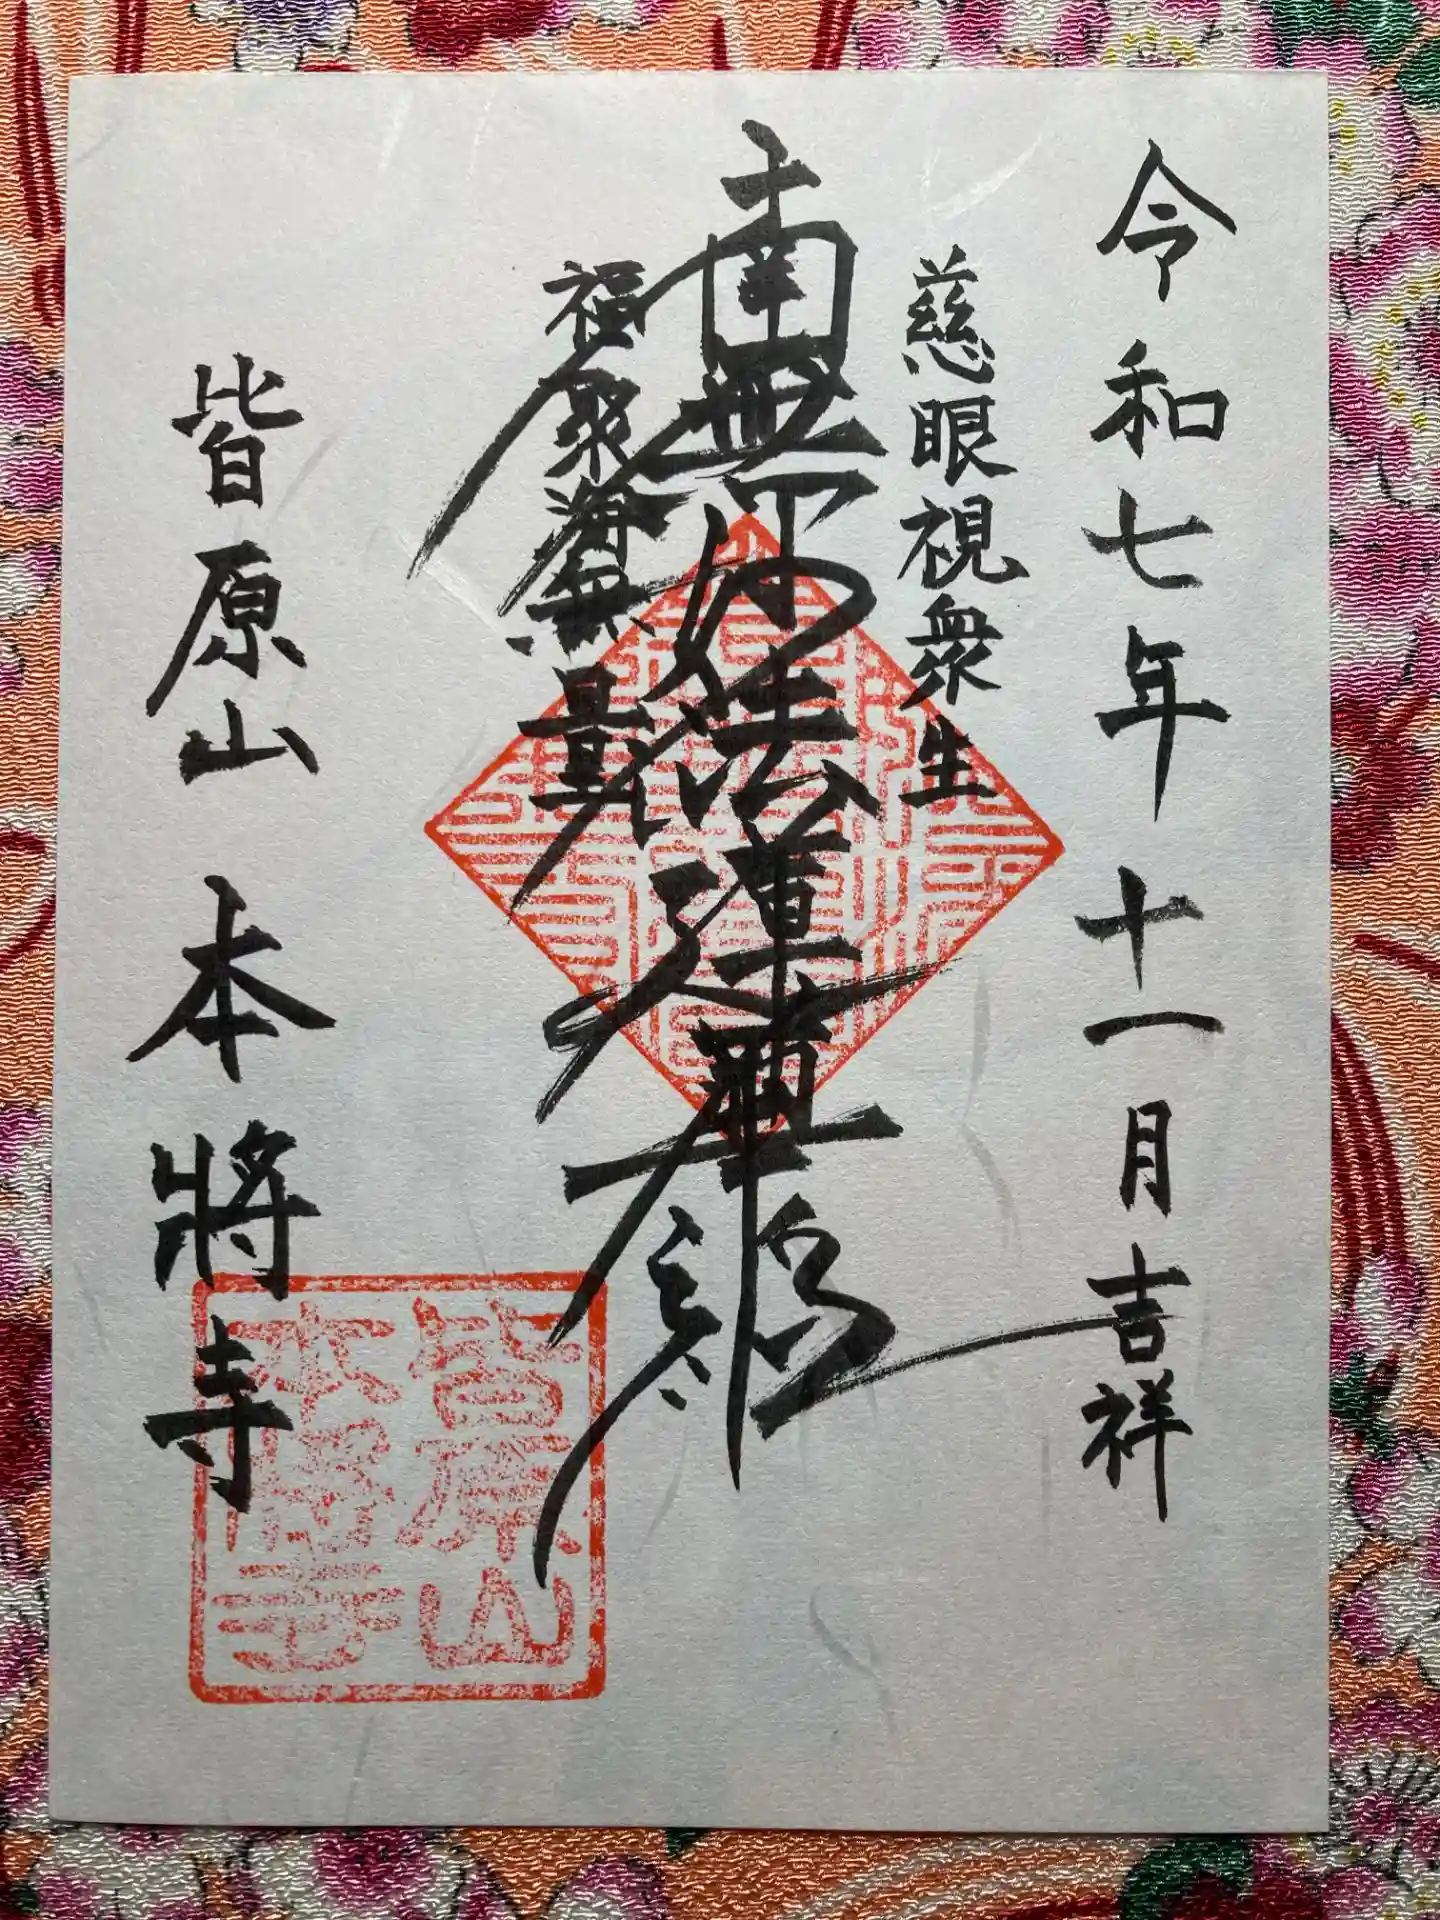 令和七年十一月吉祥
慈眼視衆生
南無妙法蓮華経
福聚海無量
皆原山 本將寺
皆原山
本將寺